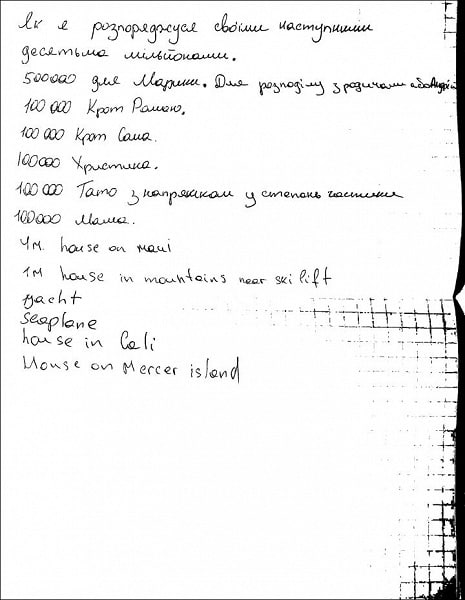 Як я розпоряджуся своїми наступними
десятьма мільйонами.
500000 для Марини. Для розподілу з родичами або
100 000 Крот Рамою.
100 000 Крот Саша.
100000 Христина.
100 000 Тато з напряжком у степень частини
100000 Мама.
4м. house on maui
1м house in mountains near ski lift
yacht
seaplane
house in Cali
House on Mercer island